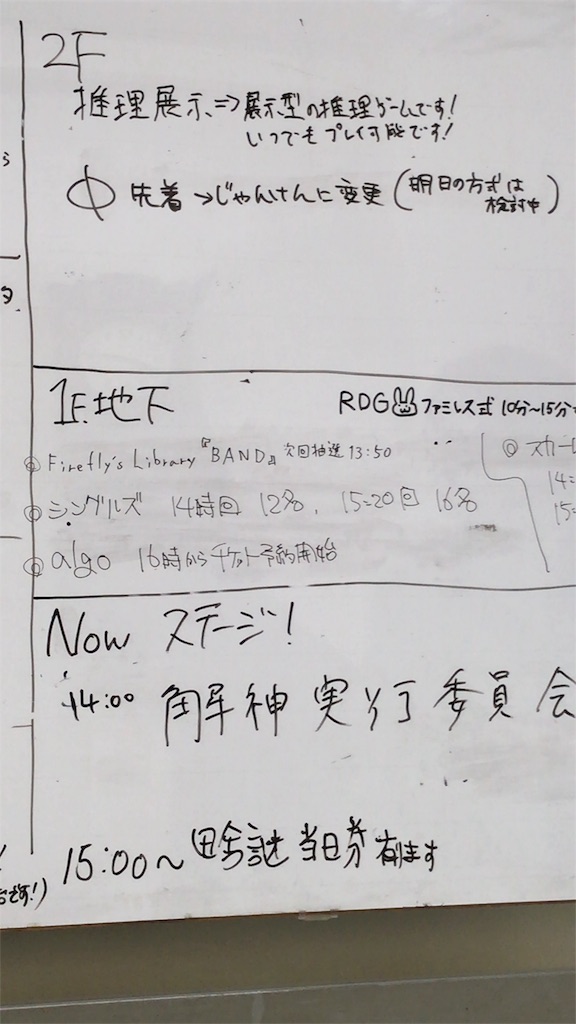 2F
推理展示 ⇒ 展示型の推理ゲームです!
いつでもプレイ可能です!
先着→じゃんけんに変更(明日の方式は
検討中)
1F.地下
RDG ファミレス式 10分〜15分
◎ Firefly's Library 『BAND』 次回抽選 13:50
◎ シングルズ 14時回 12名, 15:20回 16名
◎ algo 16時からチケット予約開始
◎ スカーレ
14:
15:
Now ステージ!
14:00 解神実行委員会
15:00〜 田舎謎 当日券 有ります
です!)